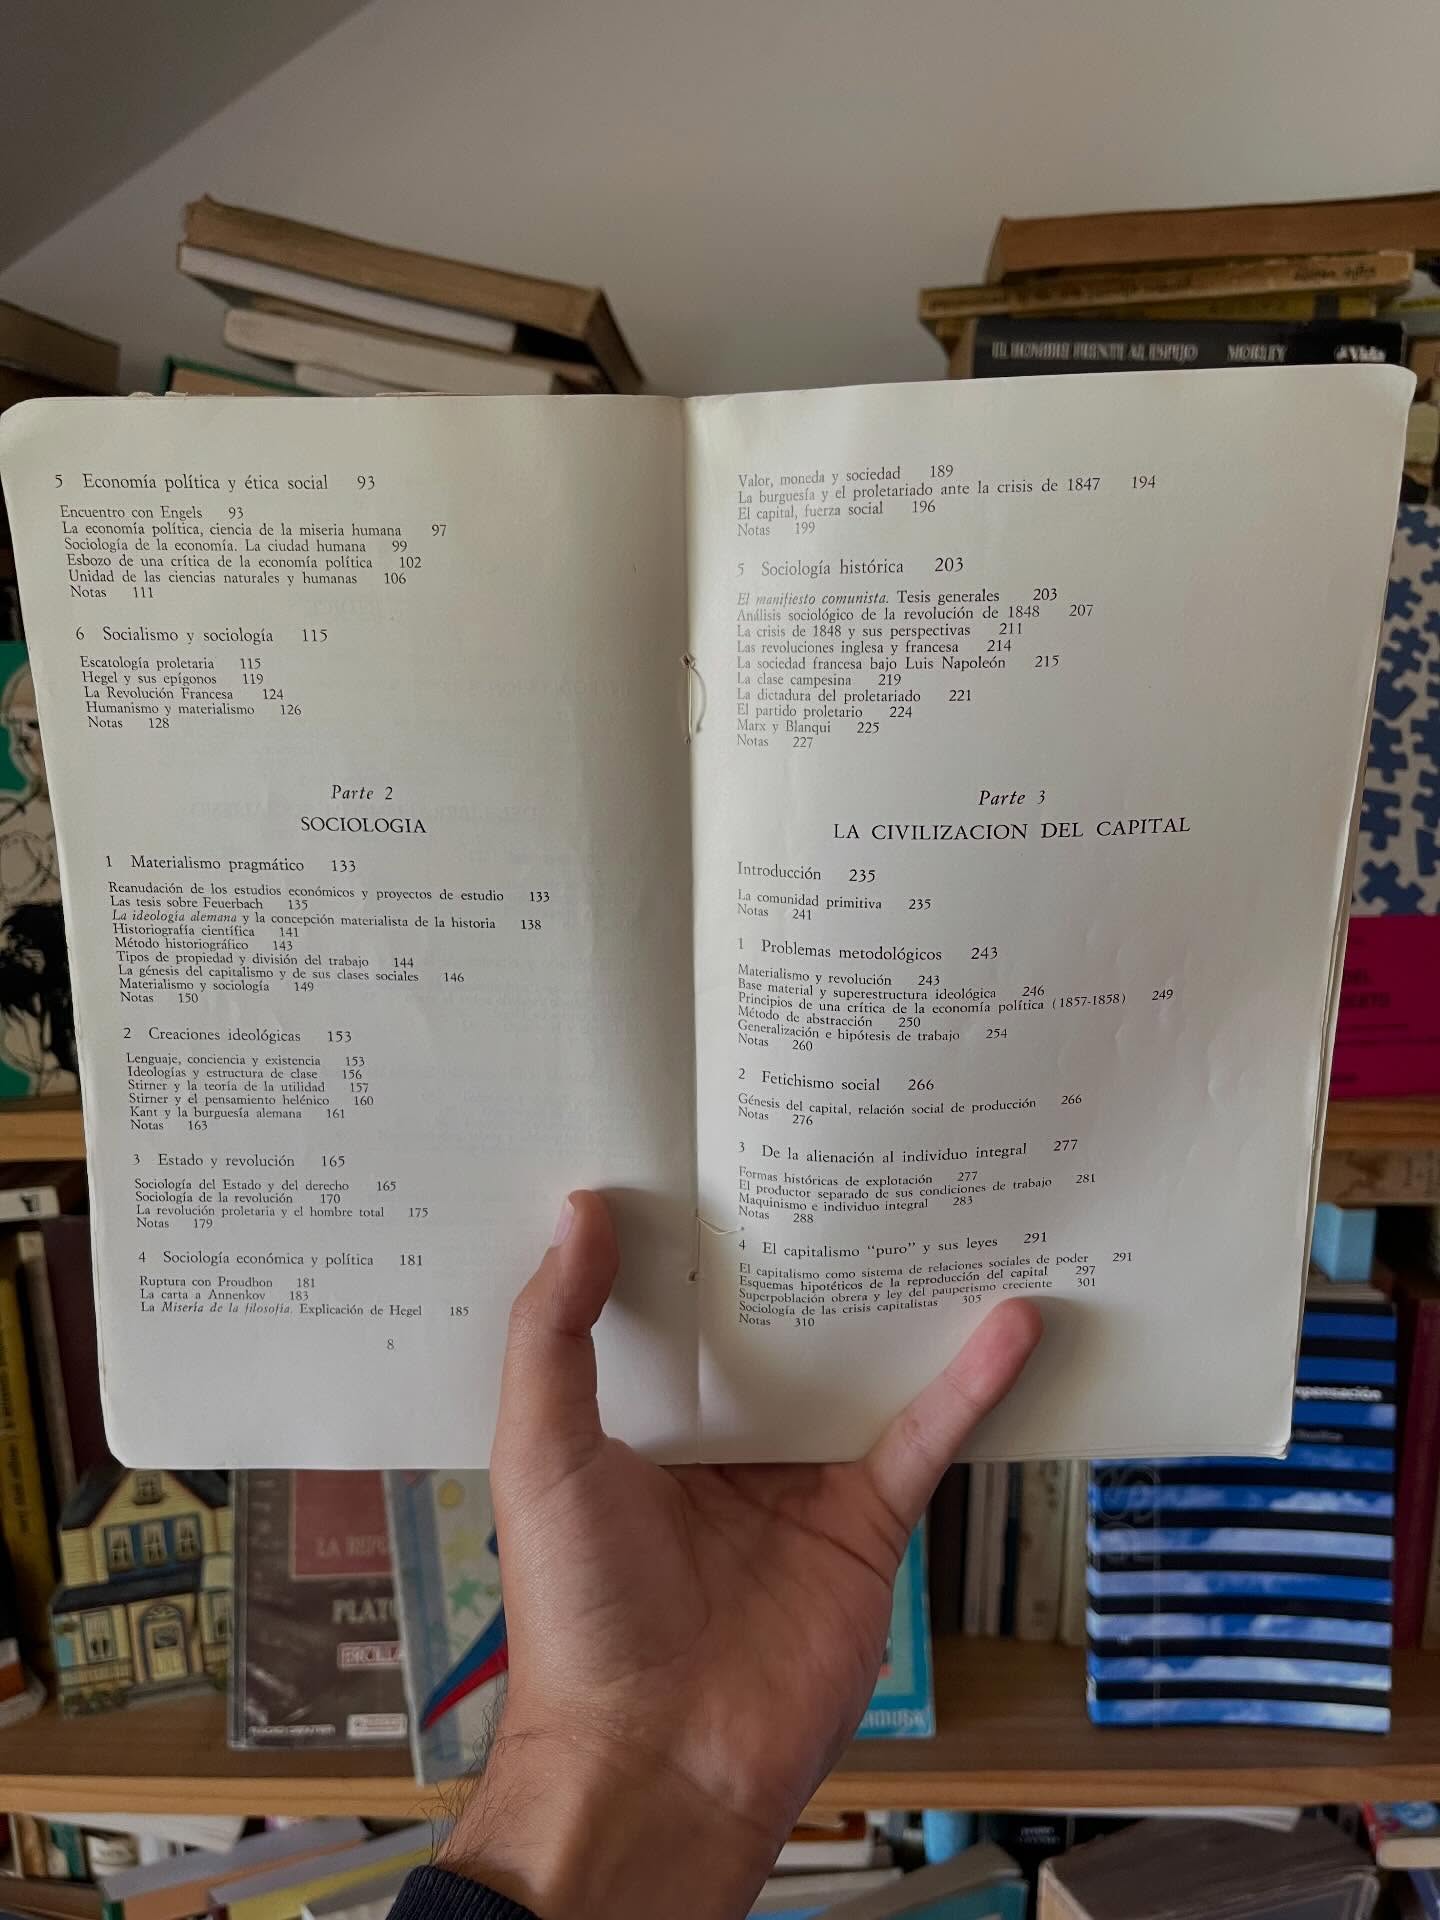 EL HOMBRE FRENTE AL ESPEJO MORLEY
5 Economía política y ética social 93
Encuentro con Engels 93
La economía política, ciencia de la miseria humana 97
Sociología de la economía. La ciudad humana 99
Esbozo de una crítica de la economía política 102
Unidad de las ciencias naturales y humanas 106
Notas 111
6 Socialismo y sociología 115
Escatología proletaria 115
Hegel y sus epígonos 119
La Revolución Francesa 124
Humanismo y materialismo 126
Notas 128
Parte 2
SOCIOLOGIA
1 Materialismo pragmático 133
Reanudación de los estudios económicos y proyectos de estudio 133
Las tesis sobre Feuerbach 135
La ideología alemana y la concepción materialista de la historia 138
Historiografía científica 141
Método historiográfico 143
Tipos de propiedad y división del trabajo 144
La génesis del capitalismo y de sus clases sociales 146
Materialismo y sociología 149
Notas 150
2 Creaciones ideológicas 153
Lenguaje, conciencia y existencia 153
Ideologías y estructura de clase 156
Stirner y la teoría de la utilidad 157
Stirner y el pensamiento helénico 160
Kant y la burguesía alemana 161
Notas 163
3 Estado y revolución 165
Sociología del Estado y del derecho 165
Sociología de la revolución 170
La revolución proletaria y el hombre total 175
Notas 179
4 Sociología económica y política 181
Ruptura con Proudhon 181
La carta a Annenkov 183
La Miseria de la filosofía. Explicación de Hegel 185
8
Valor, moneda y sociedad 189
La burguesía y el proletariado ante la crisis de 1847 194
El capital, fuerza social 196
Notas 199
5 Sociología histórica 203
El manifiesto comunista. Tesis generales 203
Análisis sociológico de la revolución de 1848 207
La crisis de 1848 y sus perspectivas 211
Las revoluciones inglesa y francesa 214
La sociedad francesa bajo Luis Napoleón 215
La clase campesina 219
La dictadura del proletariado 221
El partido proletario 224
Marx y Blanqui 225
Notas 227
Parte 3
LA CIVILIZACION DEL CAPITAL
Introducción 235
La comunidad primitiva 235
Notas 241
1 Problemas metodológicos 243
Materialismo y revolución 243
Base material y superestructura ideológica 246
Principios de una crítica de la economía política (1857-1858) 249
Método de abstracción 250
Generalización e hipótesis de trabajo 254
Notas 260
2 Fetichismo social 266
Génesis del capital, relación social de producción 266
Notas 276
3 De la alienación al individuo integral 277
Formas históricas de explotación 277
El productor separado de sus condiciones de trabajo 281
Maquinismo e individuo integral 283
Notas 288
4 El capitalismo "puro" y sus leyes 291
El capitalismo como sistema de relaciones sociales de poder 291
Esquemas hipotéticos de la reproducción del capital 297
Superpoblación obrera y ley del pauperismo creciente 301
Sociología de las crisis capitalistas 305
Notas 310
DEL
LA
PLAT